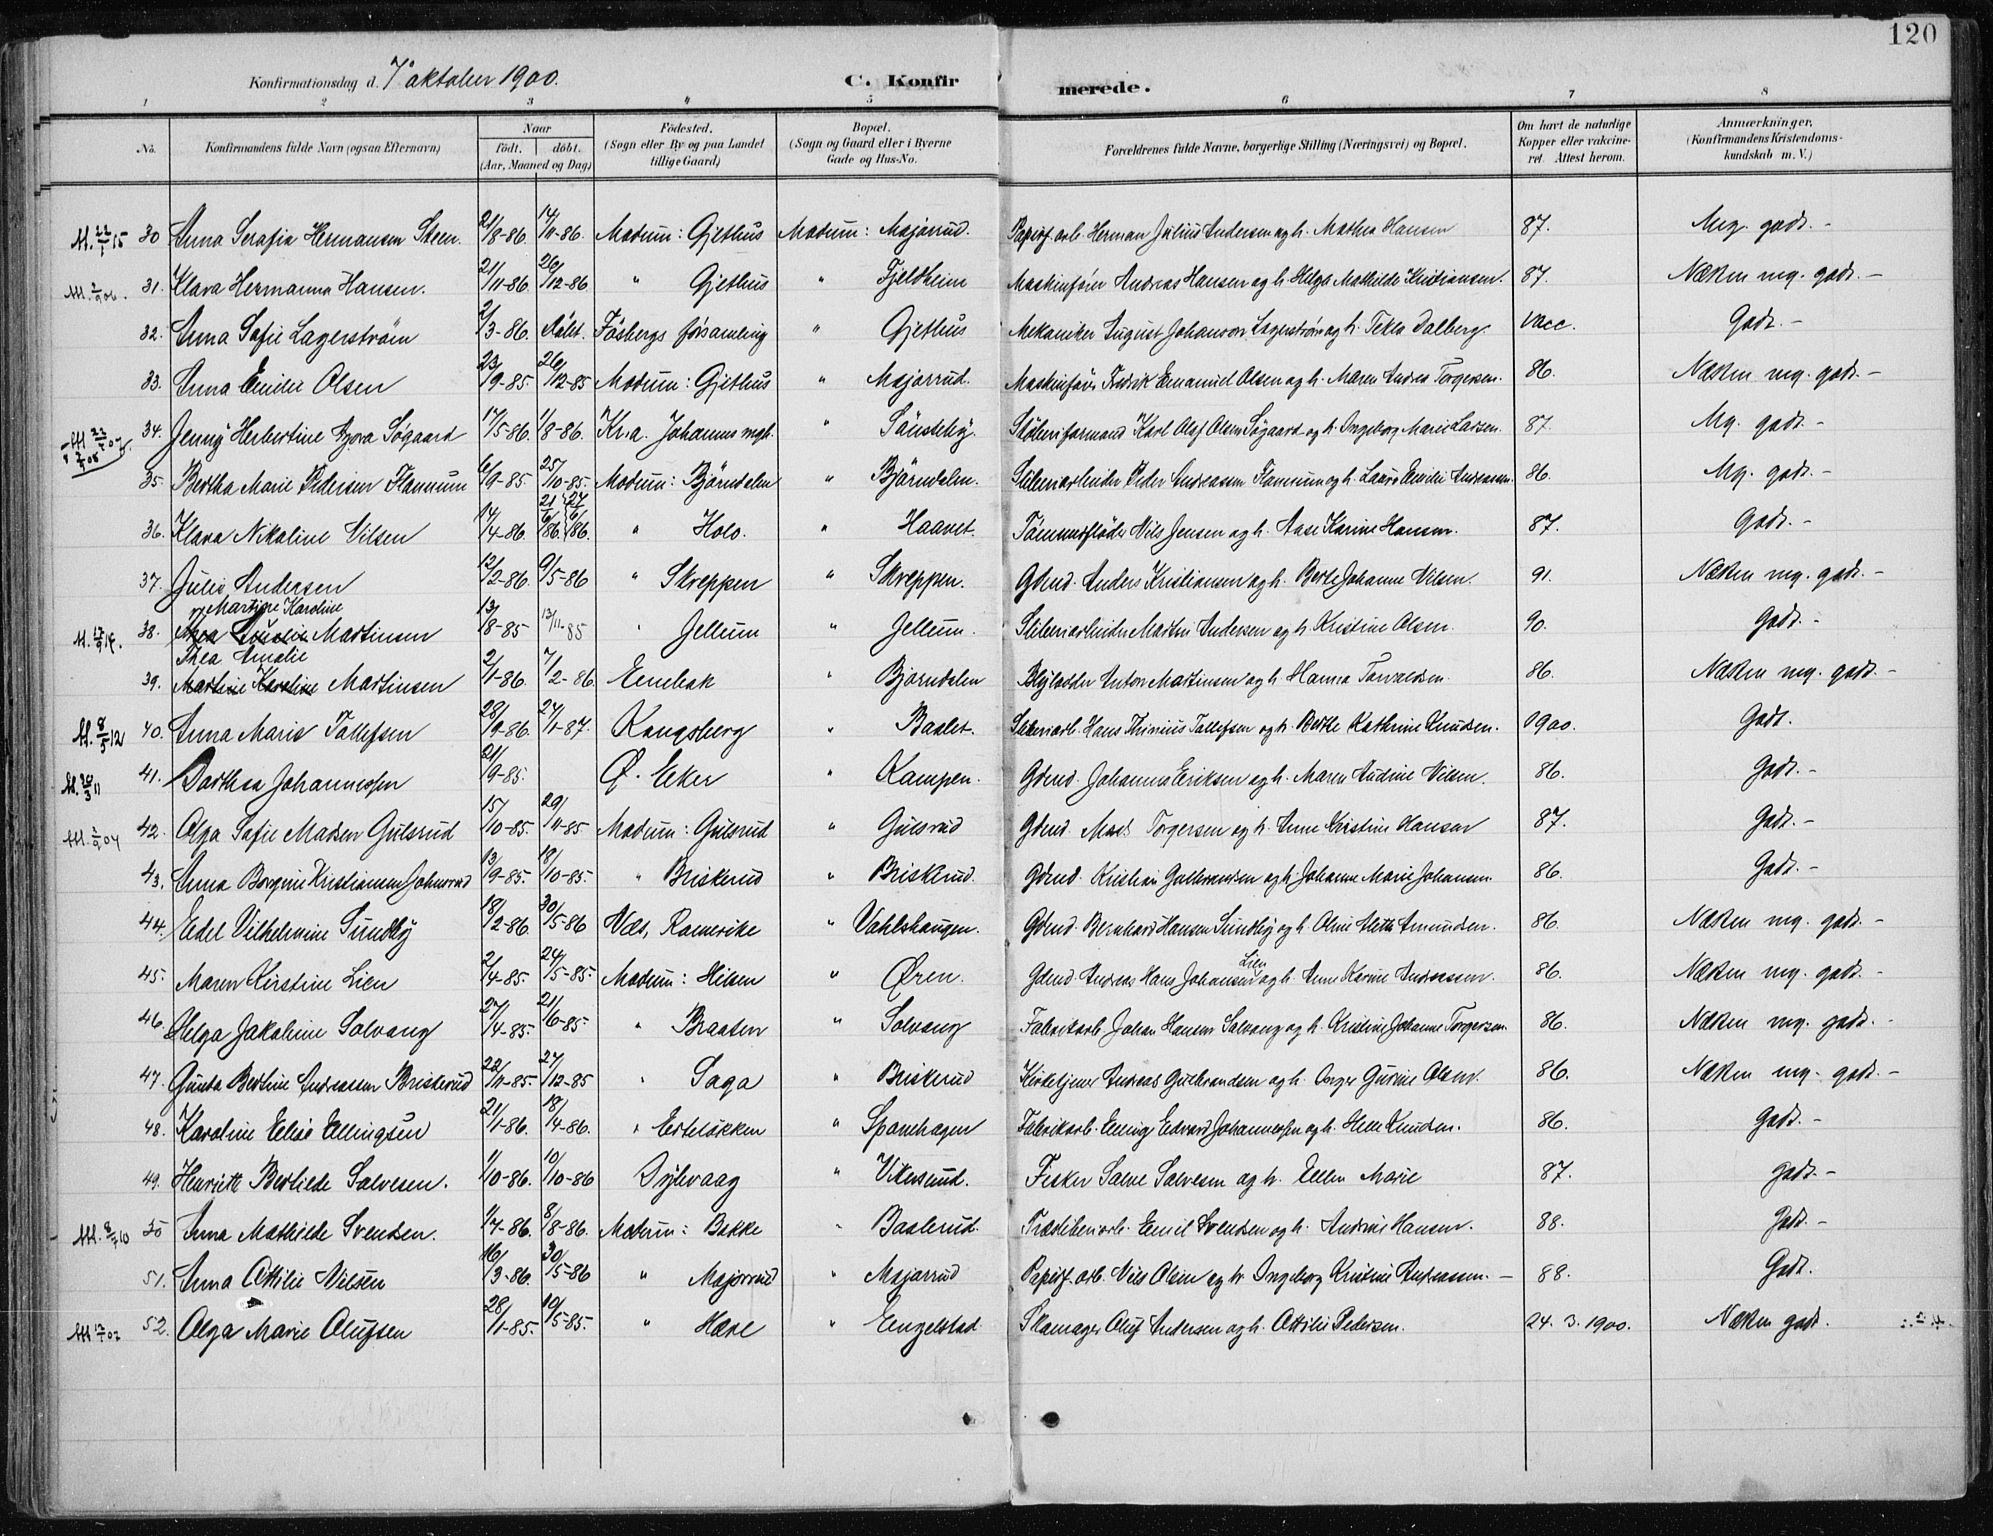 120
Konfirmationsdag d. 7 oktober 1900. C. Konfir merede.
1 2 3 4 5 6 7 8
No. Konfirmandens fulde Navn (ogsaa Efternavn) Naar födt. döbt. (Aar, Maaned og Dag) Födested. (Sogn eller By og paa Landet tillige Gaard) Bopæl. (Sogn og Gaard eller i Byerne Gade og Hus-No. Forældrenes fulde Navne, borgerlige Stilling (Næringsvei) og Bopæl. Om havt de naturlige Kopper eller vakcineret. Attest herom. Anmærkninger. (Konfirmandens Kristendomskundskab m. V.)
30 Anna Serafia Hermansen Steen. 21/8-86. 14/11-86. Modum: Gjethus Modum: Majorrud. Papirf. arb. Herman Julius Andersen og h. Mathea Hansen 87. Mg. godt. -
31. Klara Hermanna Hansen. 21/11-86. 26/12-86 " Gjethus " Fjeldheim Maskinfører Andreas Hansen og h. Helga Mathilde Kristiansen. 87. Næsten mg. godt. -
32. Anna Sofie Lagerström 2/3-86. döbt. Fösbergs församling " Gjethus Mekaniker August Johanson Lagerström og h. Tekla Dalberg. Vacc. Godt. -
33. Anna Emilie Olsen 23/9-85. 26/12-85 Modum: Gjethus " Majorrud. Maskinfører Fredrik Emanuel Olsen og h. Maren Andrea Torgersen. 86. Næsten mg. godt. -
34. Jenny Herbertine Thora Søgaard 17/5-86. 1/8-86. Kr.a. Johannes mgh. " Sønsteby. Sliberiformand Karl Olaf Olsen Søgaard og h. Ingeborg Marie Larsen. 87. Mg. godt. -
35. Bertha Marie Pedersen Flannum 6/9-85. 25/10-85. Modum: Björndalen " Björndalen. Sliberiarbeider Peder Andreassen Flannum og h. Laura Emilie Andreassen. 86. Mg. godt. -
36. Klara Nikoline Nilsen 14/4-86. 21/6 86. 27/6 86. " Holo. " Haavet. Tömmerfløder Nils Jensen og h. Aase Karine Hansen. 87. Godt. -
37. Julie Andersen 12/2-86. 9/5-86 " Skreppen " Skreppen. Gdmd. Anders Kristiansen og h. Berte Johanne Nilsen. 91. Næsten mg. godt. -
Martine Karoline
38. Thea Amalie Martinsen 13/8-85 13/11-85 " Jellum " Jellum. Sliberiarbeider Martin Andersen og h. Kristine Olsen. 90. Godt. -
Thea Amalie
39. Martine Karoline Martinsen 2/1-86. 7/2-86. Enebak " Björndalen Anton Martinsen og h. Hanna Torvaldsen. 86. Næsten mg. godt. -
40. Anna Marie Tollefsen 28/9-86. 27/1-87. Kongsberg " Baslet. Sliberiarb. Hans Thinius Tollefsen og h. Berthe Kathrine Knudsen. 1900. Godt.
41. Dorthea Johannessen 21/9-85. Ø. Eker " Kampen. Gdmd. Johannes Eriksen og h. Maren Andine Nilsen. 86. Godt. -
42. Olga Sofie Madsen Gulsrud 15/10-85. 29/11-85 Modum: Gulsrud " Gulsrud Gdmd. Mads Torgersen og h. Anne Kristine Hansen 87. Godt. -
43. Anna Borgine Kristiansen Johnsrud 13/9-85. 18/10-85. " Briskerud " Briskerud. Gdmd. Kristian Gulbrandsen og h. Johanne Marie Johansen. 86. Godt. -
44. Edel Vilhelmine Sundby 18/2-86. 30/5-86 Næs, Romerike " Vahlshaugen. Gdmd. Bernhard Hansen Sundby og h. Oline Aletta Amundsen. 86. Næsten mg. godt. -
45. Maren Kirstine Lien 2/4-85. 24/5-85. Modum: Hilsen " Øren. Gdmd. Andreas Hans Johansen Lien og h. Anne Karine Andreassen. 86. Næsten mg. godt. -
46. Helga Jakobine Solvang 27/4-85. 21/6-85. " Braaten " Solvang Fabrikarb. Johan Hansen Solvang og h. Kristine Johanne Torgersen. 86. Næsten mg. godt. -
47. Gunda Bertine Andreassen Briskerud 22/11-85. 27/12-85 " Saga " Briskerud Kirketjener Andreas Gulbrandsen og h. Inger Gurine Olsen. 86. Næsten mg. godt. -
48. Karoline Elise Ellingsen 21/1-86. 18/4-86. " Erteløkken " Sponehagen Fabrikarb. Elling Edvard Johannessen og h. Helle Knudsen. 86. Godt. -
49. Henriette Bertilde Salvesen. 1/10-86. 10/10-86 Dybvaag " Vikersund. Fisker Salve Salvesen og h. Ellen Marie 87. godt. -
50 Anna Mathilde Svendsen. 1/7-86. 8/8-86. Modum: Bakke " Baslerud. Træsliberiarb. Emil Svendsen og h. Andrine Hansen. 88. Godt. -
51. Anna Otilie Nilsen 16/3-86. 30/5-86 " Majorrud " Majorrud Papirf. arb. Nils Olsen og h. Ingeborg Kristine Andreassen. - 88. Godt.
52. Olga Marie Olufsen 28/1-85. 10/5-85. " Hære " Engelstad. Skomager Oluf Andersen og h. Otilie Pedersen. 24. 3. 1900. Næsten godt.